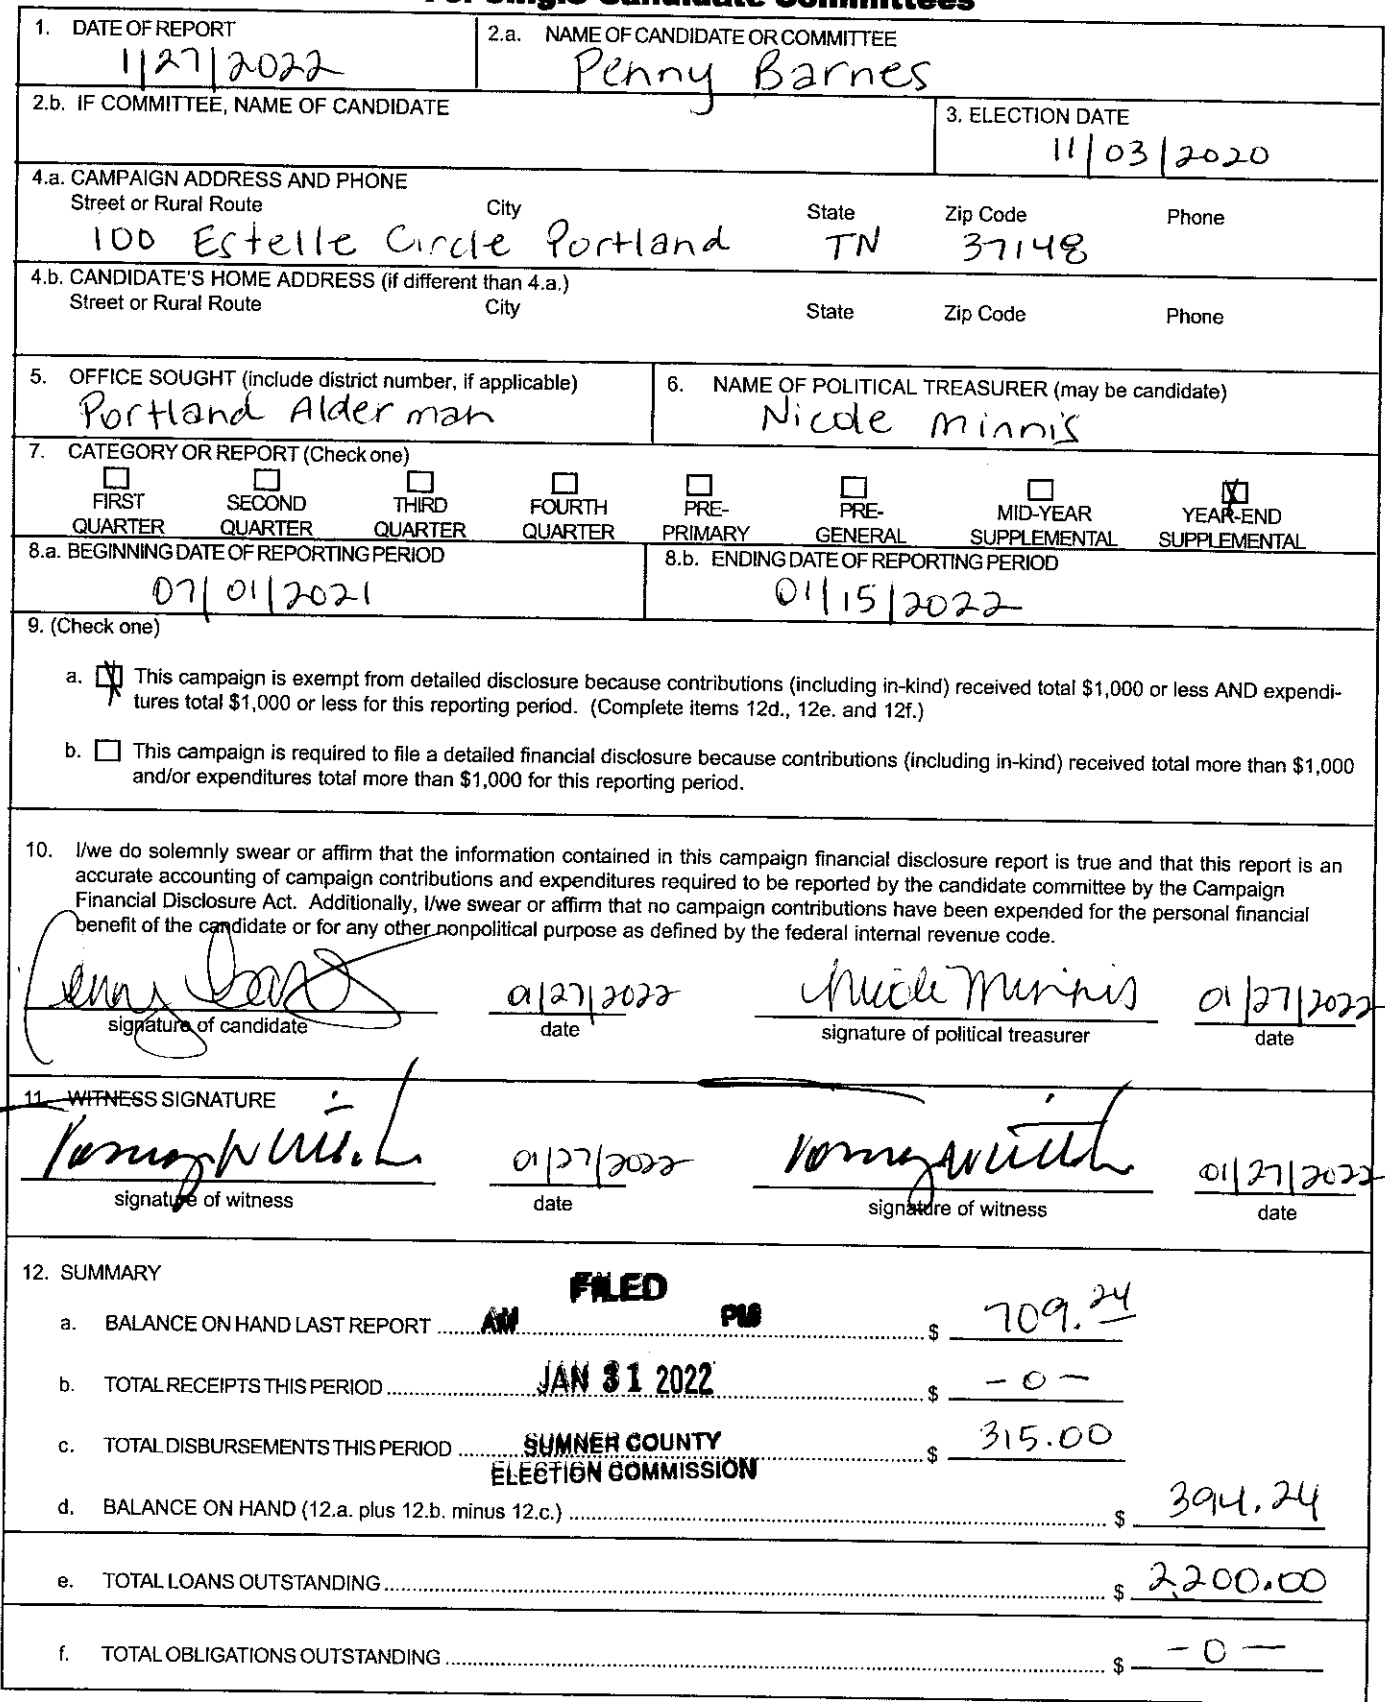 For Single Candidate Committees
1. DATE OF REPORT
1/27/2022
2.a. NAME OF CANDIDATE OR COMMITTEE
Penny Barnes
2.b. IF COMMITTEE, NAME OF CANDIDATE
3. ELECTION DATE
11/03/2020
4.a. CAMPAIGN ADDRESS AND PHONE
Street or Rural Route City State Zip Code Phone
100 Estelle Circle Portland TN 37148
4.b. CANDIDATE'S HOME ADDRESS (if different than 4.a.)
Street or Rural Route City State Zip Code Phone
5. OFFICE SOUGHT (include district number, if applicable)
Portland Alderman
6. NAME OF POLITICAL TREASURER (may be candidate)
Nicole Minnis
7. CATEGORY OR REPORT (Check one)
FIRST QUARTER
SECOND QUARTER
THIRD QUARTER
FOURTH QUARTER
PRE-PRIMARY
PRE-GENERAL
MID-YEAR SUPPLEMENTAL
YEAR-END SUPPLEMENTAL
8.a. BEGINNING DATE OF REPORTING PERIOD
07/01/2021
8.b. ENDING DATE OF REPORTING PERIOD
01/15/2022
9. (Check one)
a. This campaign is exempt from detailed disclosure because contributions (including in-kind) received total $1,000 or less AND expendi-
tures total $1,000 or less for this reporting period. (Complete items 12d., 12e. and 12f.)
b. This campaign is required to file a detailed financial disclosure because contributions (including in-kind) received total more than $1,000
and/or expenditures total more than $1,000 for this reporting period.
10. I/we do solemnly swear or affirm that the information contained in this campaign financial disclosure report is true and that this report is an
accurate accounting of campaign contributions and expenditures required to be reported by the candidate committee by the Campaign
Financial Disclosure Act. Additionally, I/we swear or affirm that no campaign contributions have been expended for the personal financial
benefit of the candidate or for any other nonpolitical purpose as defined by the federal internal revenue code.
Penny Barnes 01/27/2022 Nicole Minnis 01/27/2022
signature of candidate date signature of political treasurer date
11. WITNESS SIGNATURE
01/27/2022 01/27/2022
signature of witness date signature of witness date
12. SUMMARY
FILED
AM PM
a. BALANCE ON HAND LAST REPORT $ 709.24
JAN 31 2022
b. TOTAL RECEIPTS THIS PERIOD $ -0-
SUMNER COUNTY
c. TOTAL DISBURSEMENTS THIS PERIOD $ 315.00
ELECTION COMMISSION
d. BALANCE ON HAND (12.a. plus 12.b. minus 12.c.) $ 394.24
e. TOTAL LOANS OUTSTANDING $ 2,200.00
f. TOTAL OBLIGATIONS OUTSTANDING $ -0-